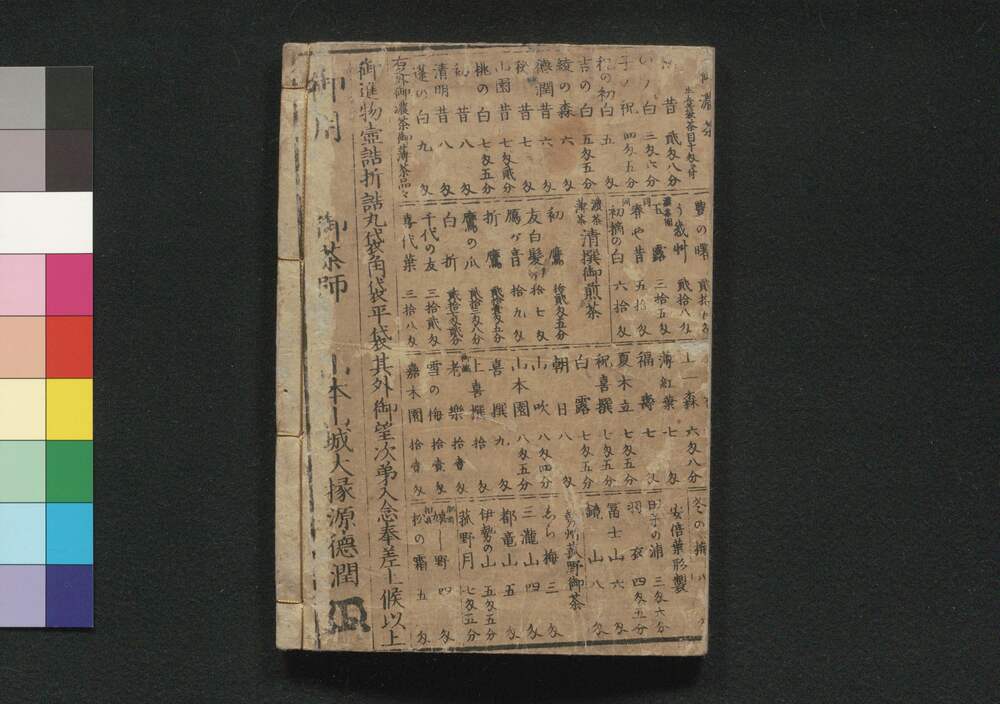 御濃茶
昔 貳匁八分
白 三匁六分
祝 四匁五分
初白 五匁
吉の白 五匁五分
綾の森 六匁
徳潤昔 六匁
後昔 七匁
山園昔 七匁貳分
桃の白 七匁五分
初昔 八匁
清明昔 八匁
蓬の白 九匁
右之外御濃茶御薄茶品々
豊の曙
う幾舛 貳拾八匁
玉露 三拾五匁
春や昔 五拾匁
初摘の白 六拾匁
濃茶
薄茶 清撰御煎茶
初鷹 拾貳匁五分
友白髪 拾七匁
鷹ヶ音 拾九匁
折鷹
鷹の爪
白折
千代の友 三拾貳匁
喜代葉 三拾八匁
一森 六匁八分
薄紅葉 七匁
福壽 七匁
夏木立 七匁五分
祝喜撰 七匁五分
白露 七匁五分
朝日 八匁
山吹 八匁四分
山本園 八匁五分
喜撰 九匁
上喜撰 拾匁
老樂 拾壹匁
雪の梅 拾壹匁
嘉木園 拾壹匁
冬の
安倍葉形製
田子の浦 三匁六分
羽衣 四匁五分
冨士山 六匁
鏡山 八匁
菰野御茶
しら梅 三匁
三瀧山 四匁
都竜山 五匁
伊勢の山 五匁五分
菰野月 七匁五分
野 四匁
松の霜 五匁
御進物壷詰折詰丸袋角袋平袋其外御望次第入念奉差上候以上
御用 御茶師 山本山城大掾源德潤